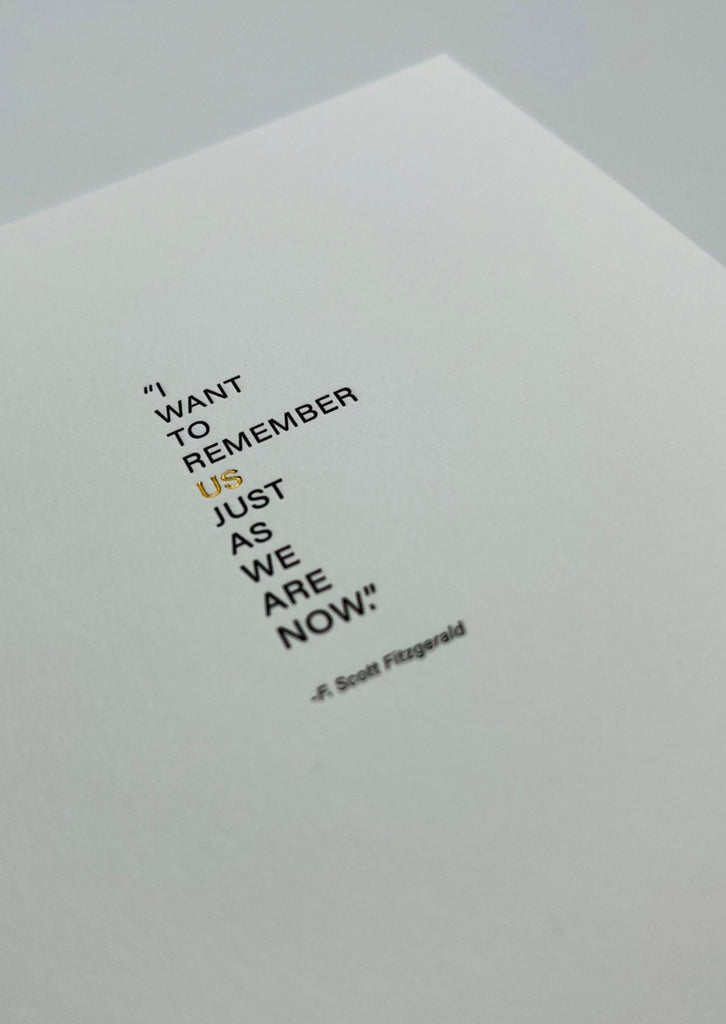 “I
WANT
TO
REMEMBER
US
JUST
AS
WE
ARE
NOW.”
-F. Scott Fitzgerald